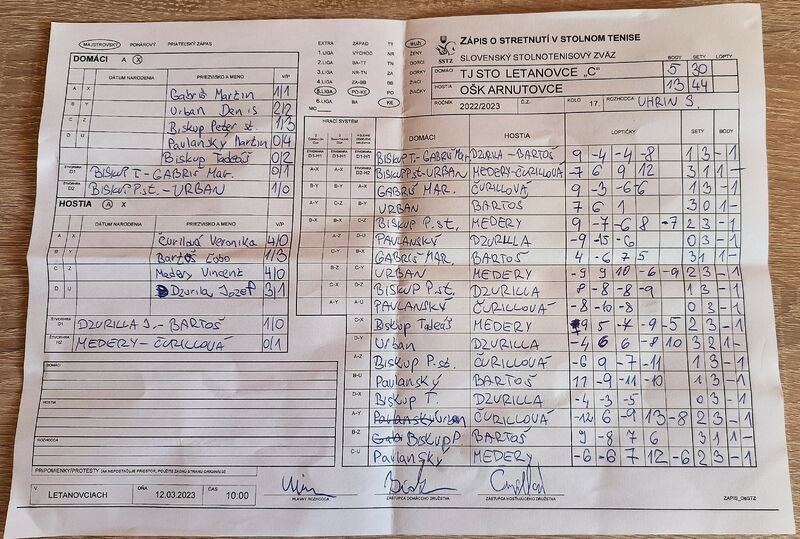 MAJSTROVSKÝ POHÁROVÝ PRIATEĽSKÝ ZÁPAS
DOMÁCI A X
DÁTUM NARODENIA PRIEZVISKO A MENO V/P
A X Gabriš Martin 1/1
B Y Urban Denis 2/2
C Z Biskup Peter st. 1/3
D U Pavlanský Martin 0/4
Biskup Tadeáš 0/2
ŠTVORHRA D1 BISKUP T.-GABRIŠ MAR. 0/1
ŠTVORHRA D2 BISKUP P.st.-URBAN 1/0
HOSTIA A X
DÁTUM NARODENIA PRIEZVISKO A MENO V/P
A X Čurillová Veronika 4/0
B Y Bartoš Ľubo 1/3
C Z Medery Vincent 4/0
D U Dzurilla Jozef 3/1
ŠTVORHRA D1 DZURILLA J.-BARTOŠ 1/0
ŠTVORHRA H2 MEDERY-ČURILLOVÁ 0/1
DOMÁCI
HOSTIA
ROZHODCA
PRIPOMIENKY/PROTESTY (AK NEPOSTAČUJE PRIESTOR, POUŽITE ZADNÚ STRANU ORIGINÁLU)
V LETANOVCIACH DŇA 12.03.2023 ČAS 10:00
HLAVNÝ ROZHODCA
ZÁSTUPCA DOMÁCEHO DRUŽSTVA
ZÁSTUPCA HOSŤUJÚCEHO DRUŽSTVA
ZAPIS_OsSTZ
EXTRA ZÁPAD TT MUŽI
1.LIGA VÝCHOD NR ŽENY
2.LIGA BA-TT TN DORCI
3.LIGA NR-TN ZA DORKY
4.LIGA ZA-BB BB ŽIACI
5.LIGA PO-KE PO ŽIAČKY
6.LIGA BA KE
MO
SSTZ
ZÁPIS O STRETNUTÍ V STOLNOM TENISE
SLOVENSKÝ STOLNOTENISOVÝ ZVÄZ BODY SETY LOPTY
DOMÁCI TJ STO LETANOVCE „C" 5 30
HOSTIA OŠK ARNUTOVCE 13 44
ROČNÍK 2022/2023 Č.Z. KOLO 17. ROZHODCA UHRIN S.
HRACÍ SYSTÉM DOMÁCI HOSTIA LOPTIČKY SETY BODY
BISKUP T.-GABRIŠ Mar. DZURILA-BARTOŠ 9 -4 -4 -8 1 3 - 1
BISKUP P.st-URBAN MEDERY-ČURILLOVÁ 7 6 9 12 3 1 1 -
GABRIŠ MAR. ČURILLOVÁ 9 -3 -6 -6 1 3 - 1
URBAN BARTOŠ 7 6 1 3 0 1 -
BISKUP P.st. MEDERY 9 -7 -6 8 -7 2 3 - 1
PAVLANSKÝ DZURILLA -9 -15 -6 0 3 - 1
GABRIŠ MAR. BARTOŠ 4 -6 7 5 3 1 1 -
URBAN MEDERY -9 9 10 -6 -9 2 3 - 1
BISKUP P.st. DZURILLA -8 -8 -8 -9 1 3 - 1
PAVLANSKÝ ČURILLOVÁ -8 -10 -8 0 3 - 1
Biskup Tadeáš MEDERY 9 5 -7 -9 -5 2 3 - 1
Urban DZURILLA -4 6 6 -8 10 3 2 1 -
BISKUP P.st. ČURILLOVÁ -6 9 -7 -11 1 3 - 1
Pavlanský BARTOŠ 11 -9 -11 -10 1 3 - 1
BISKUP T. DZURILLA -4 -3 -5 0 3 - 1
Pavlanský Urban ČURILLOVÁ -12 6 -9 13 -8 2 3 - 1
Gab BISKUP P BARTOŠ 9 -8 7 6 3 1 1 -
Pavlanský MEDERY -6 -6 7 12 -6 2 3 - 1